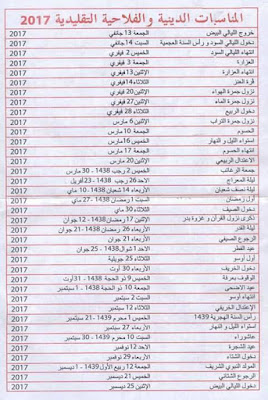 المناسبات الدينية والفلاحية التقليدية 2017
خروج الليالي البيض الجمعة 13 جانفي 2017
دخول الليالي السود و رأس السنة العجمية السبت 14 جانفي 2017
انتهاء الليالي السود الخميس 2 فيفري 2017
العزارة الجمعة 3 فيفري 2017
انتهاء العزارة الإثنين 13 فيفري 2017
قرة العنز الثلاثاء 14 فيفري 2017
نزول جمرة الهواء الإثنين 20 فيفري 2017
نزول جمرة الماء الإثنين 27 فيفري 2017
دخول الربيع الثلاثاء 28 فيفري 2017
نزول جمرة التراب الإثنين 6 مارس 2017
الحسوم الجمعة 10 مارس 2017
استواء الليل و النهار الخميس 16 مارس 2017
انتهاء الحسوم الجمعة 17 مارس 2017
الإعتدال الربيعي الإثنين 20 مارس 2017
جمعة الرغائب الخميس 2 رجب 1438 - 30 مارس 2017
ليلة المعراج الاحد 26 رجب 1438 - 23 أفريل 2017
ليلة نصف شعبان الأربعاء 14 شعبان 1438 - 10 ماي 2017
أول رمضان السبت 1 رمضان 1438 - 27 ماي 2017
دخول الصيف الثلاثاء 30 ماي 2017
ذكرى نزول القرآن و غزوة بدر الإثنين 17 رمضان 1438 - 12 جوان 2017
ليلة القدر الأربعاء 26 رمضان 1438 - 21 جوان 2017
الرجوع الصيفي الأربعاء 21 جوان 2017
عيد الفطر الاحد 1 شوال 1438 - 25 جوان 2017
أول أوسو الثلاثاء 25 جويلية 2017
دخول الخريف الأربعاء 30 أوت 2017
الوقوف بعرفة الخميس 9 ذو الحجة 1438 - 31 أوت 2017
عيد الاضحى الجمعة 10 ذو الحجة 1438 - 1 سبتمبر 2017
انتهاء أوسو السبت 2 سبتمبر 2017
الإعتدال الخريفي الجمعة 22 سبتمبر 2017
رأس السنة الهجرية 1439 الخميس 1 محرم 1439 - 21 سبتمبر 2017
استواء الليل و النهار الأربعاء 27 سبتمبر 2017
عاشوراء السبت 10 محرم 1439 - 30 سبتمبر 2017
عيد الشجرة الاحد 12 نوفمبر 2017
دخول الشتاء الأربعاء 29 نوفمبر 2017
المولد النبوي الشريف الجمعة 12 ربيع الأول 1439 - 1 ديسمبر 2017
الرجوع الشتائي الخميس 21 ديسمبر 2017
دخول الليالي البيض الإثنين 25 ديسمبر 2017